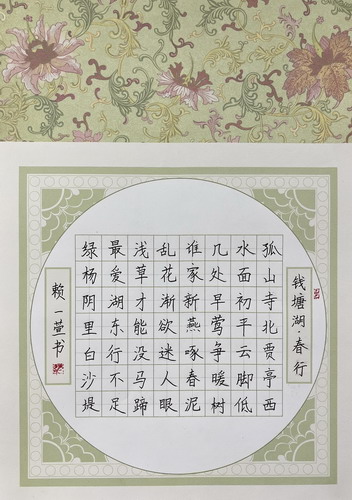 钱塘湖·春行
孤山寺北贾亭西
水面初平云脚低
几处早莺争暖树
谁家新燕啄春泥
乱花渐欲迷人眼
浅草才能没马蹄
最爱湖东行不足
绿杨阴里白沙堤
赖一萱书